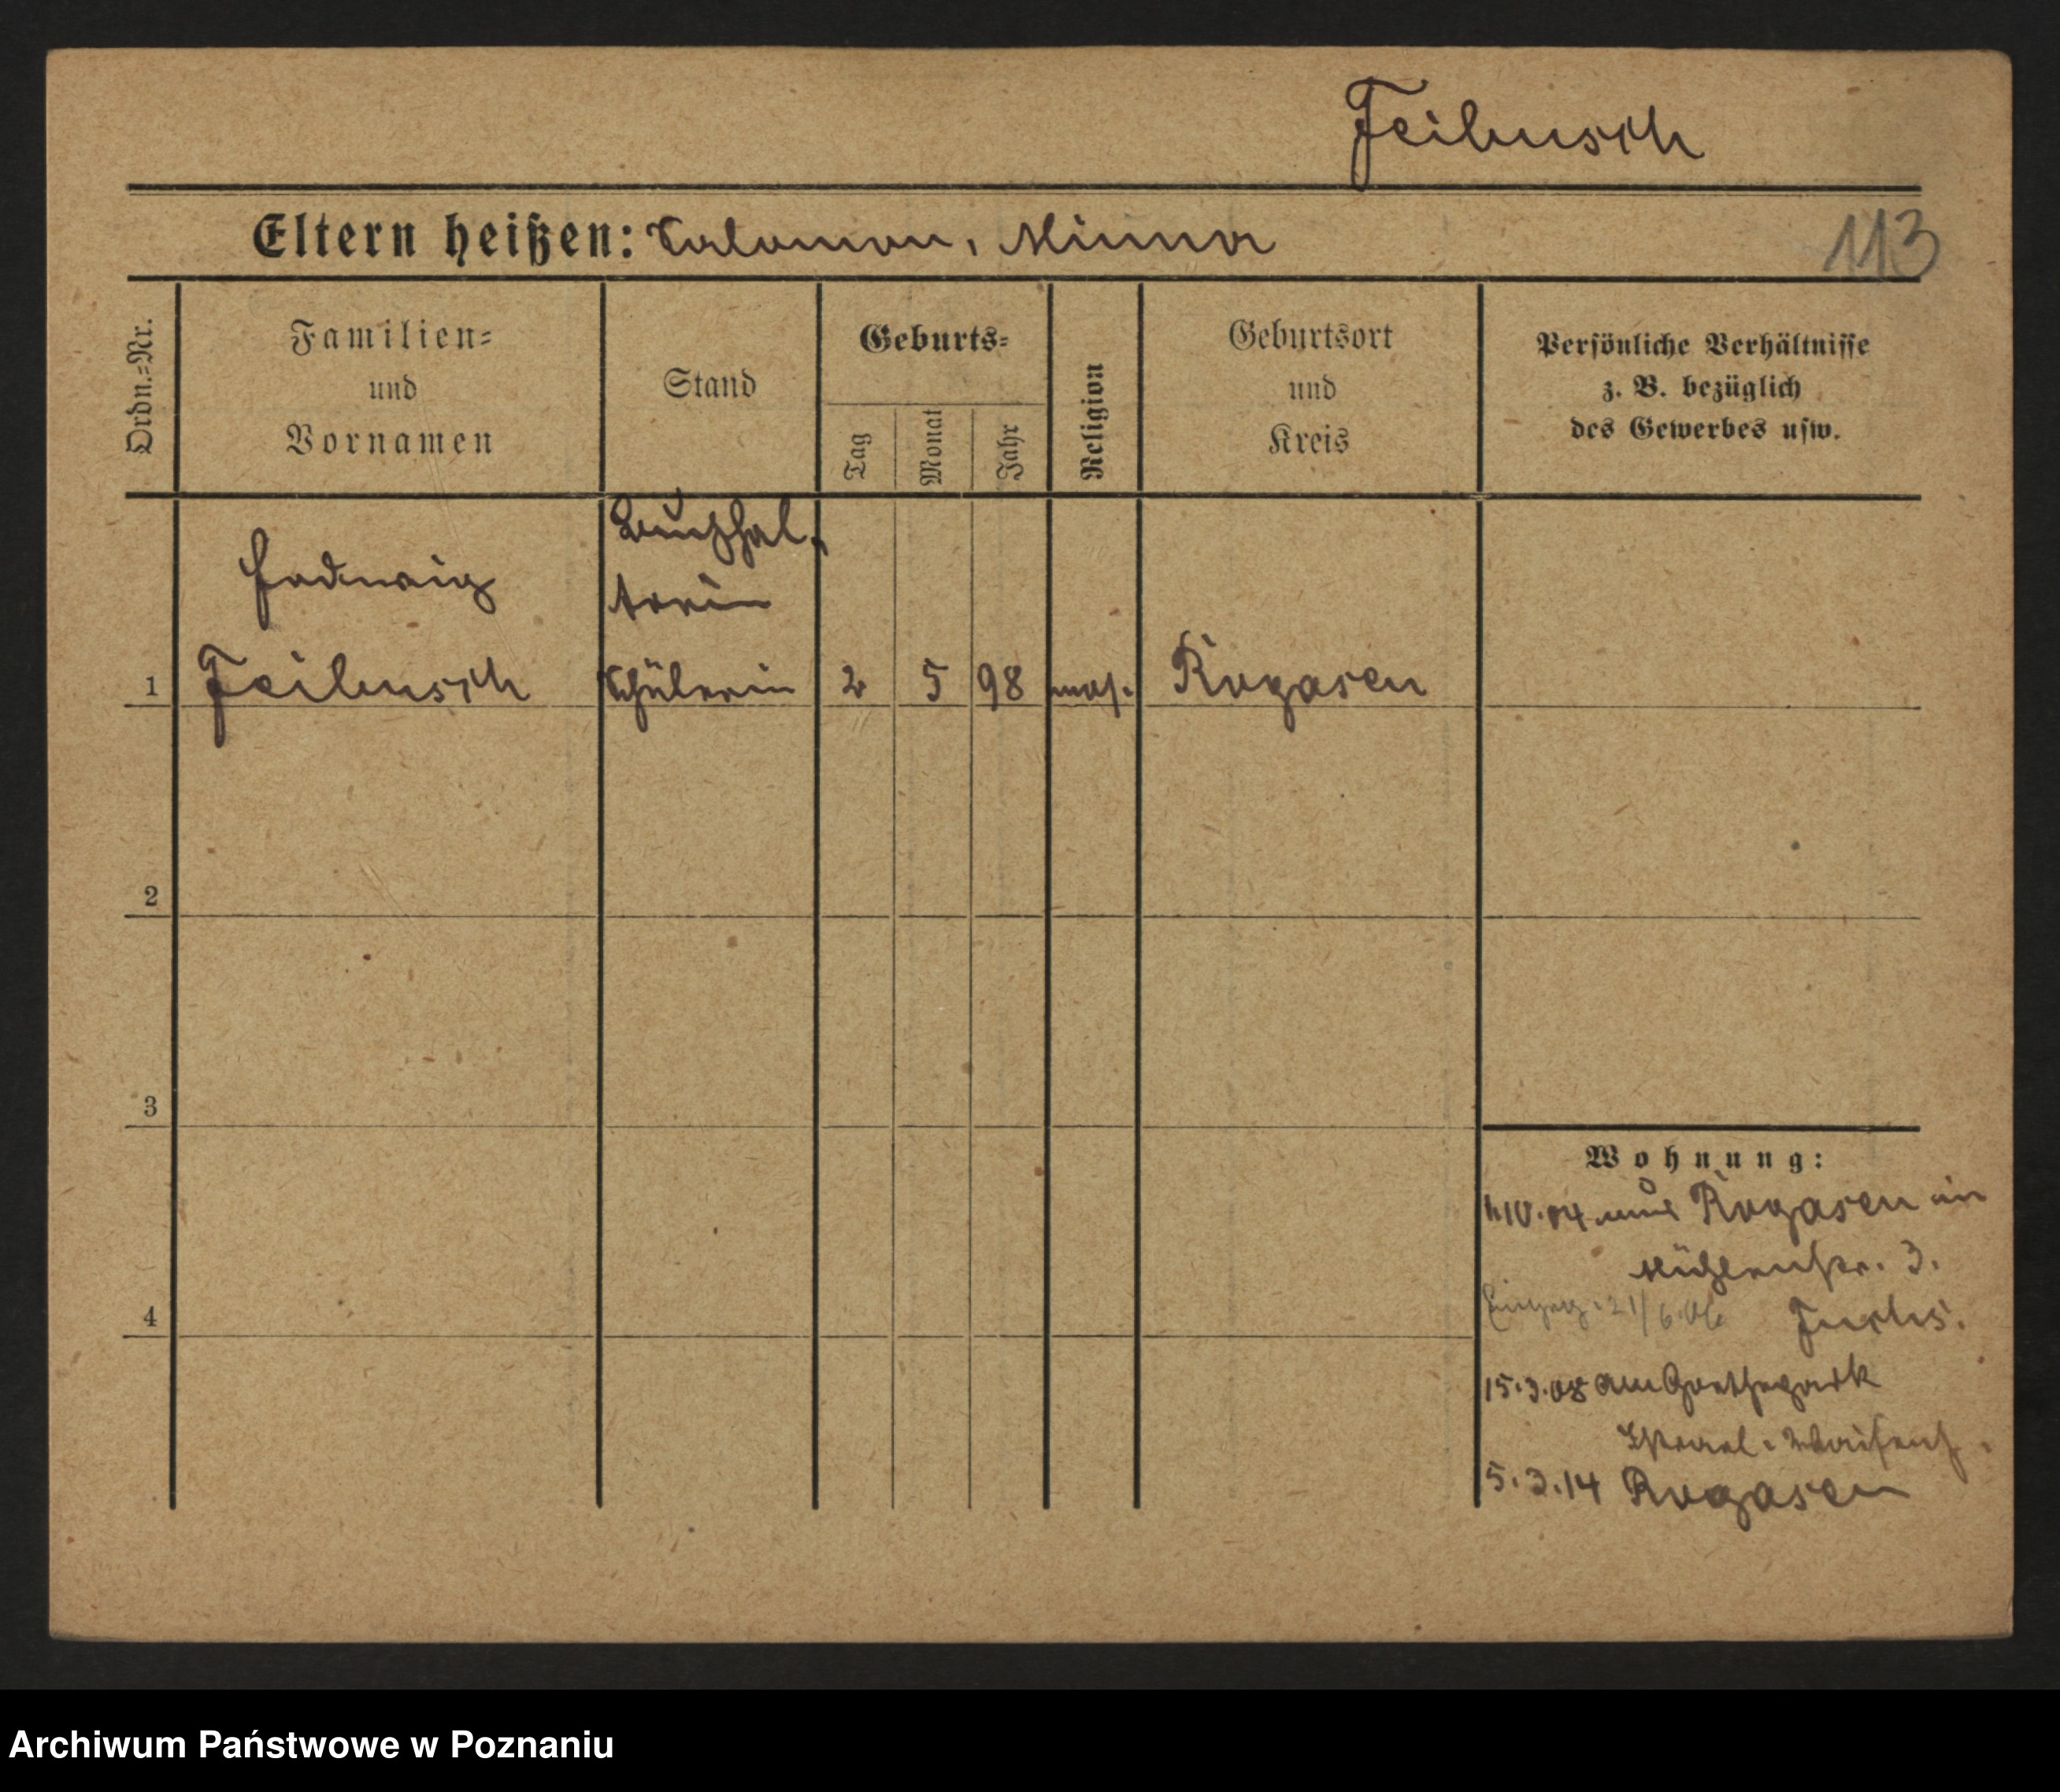 Feibusch
Eltern heißen: Salomon, Minna
113
Ordn.-Nr.
Familien-
und
Vornamen
Stand
Geburts-
Tag
Monat
Jahr
Religion
Geburtsort
und
Kreis
Persönliche Verhältnisse
z. B. bezüglich
des Gewerbes usw.
Buchhal-
terin
Hedwig
1 Feibusch Schülerin 2 5 98 mos. Rogasen
2
3
4
Wohnung:
10.04 aus Rogasen in
Mühlenstr. 3.
21/6.06 Fuchs.
15.3.08 Am Goethepark
Israel. Waisenh.
5.3.14 Rogasen
Archiwum Państwowe w Poznaniu